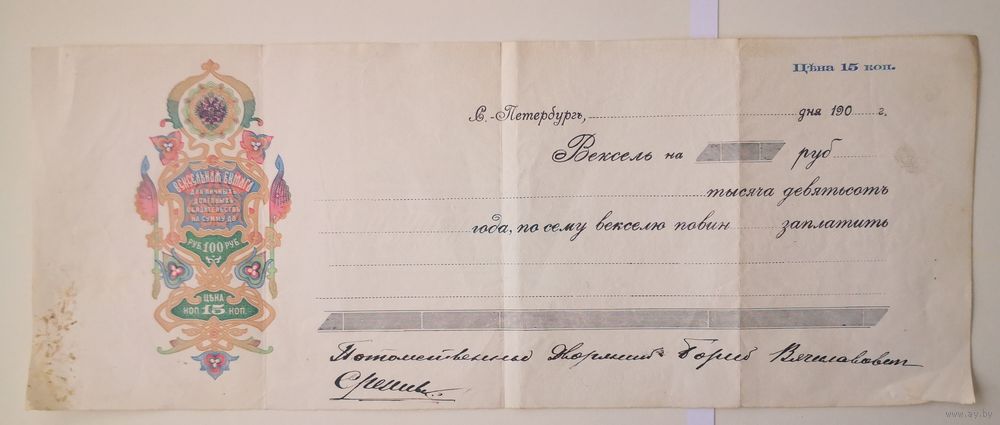 Цѣна 15 коп.
С.-Петербургъ, дня 190 г.
Вексель на руб
тысяча девятьсотъ
года, по сему векселю повин заплатить
ВЕКСЕЛЬНАЯ БУМАГА
ДЛЯ ЛИЧНЫХЪ
ДОЛГОВЫХЪ
ОБЯЗАТЕЛЬСТВЪ
НА СУММУ ДО
РУБ. 100 РУБ.
ЦѢНА
КОП. 15 КОП.
Потомственный Дворянинъ Борисъ Вячеславовичъ
www.ay.by